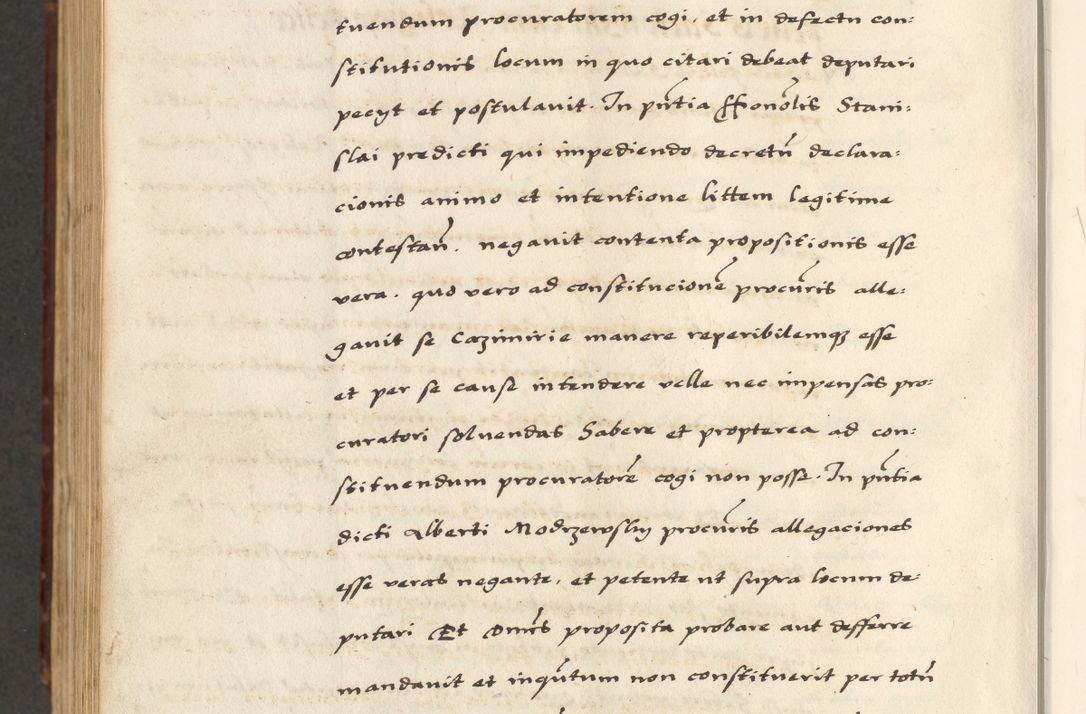 tuendum procuratorem cogi, et in defectu con:
stitutionis locum in quo citari debeat deputari
pecyt et postulavit. In pn̄tia Honōlis Stani:
slai predicti qui impediendo decretū declara:
cionis animo et intentione littem legitime
contestan̄. negavit contenta propositionis esse
vera. quo vero ad constitucionē procūris alle:
gavit se Cazimirie manere reperibilemqꝫ esse
et per se cause intendere velle nec impensas pro:
curatori soluendas habere et propterea ad con:
stituendum procuratorē cogi non posse. In pn̄tia
dicti Alberti Modrzewsky procūris allegaciones
esse veras negante, et petente ut supra locum de:
putari Et Dn̄us proposita probare aut defferre
mandavit et inqūtum non constituerit per totū